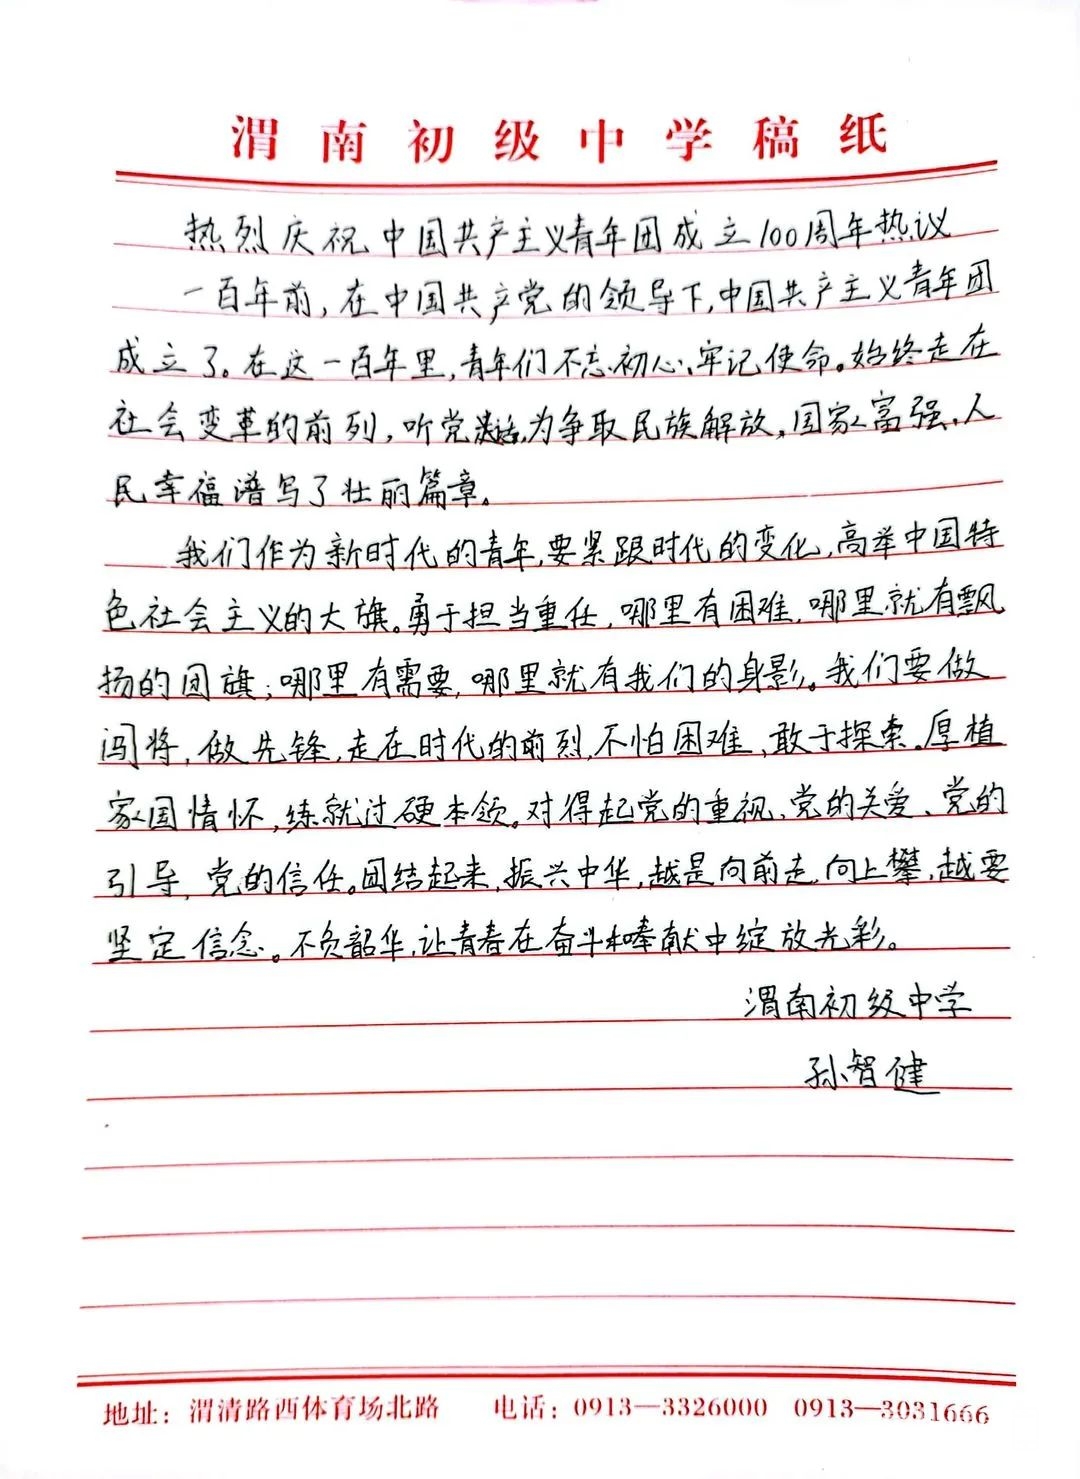 渭南初级中学稿纸
热烈庆祝中国共产主义青年团成立100周年热议
一百年前,在中国共产党的领导下,中国共产主义青年团
成立了。在这一百年里,青年们不忘初心、牢记使命。始终走在
社会变革的前列,听党话,为争取民族解放,国家富强、人
民幸福谱写了壮丽篇章。
我们作为新时代的青年,要紧跟时代的变化,高举中国特
色社会主义的大旗。勇于担当重任,哪里有困难,哪里就有飘
扬的团旗;哪里有需要,哪里就有我们的身影。我们要做
闯将,做先锋,走在时代的前列,不怕困难,敢于探索。厚植
家国情怀,练就过硬本领。对得起党的重视、党的关爱、党的
引导,党的信任。团结起来,振兴中华,越是向前走,向上攀,越要
坚定信念。不负韶华,让青春在奋斗和奉献中绽放光彩。
渭南初级中学
孙智健
地址:渭清路西体育场北路 电话:0913—3326000 0913—3031666